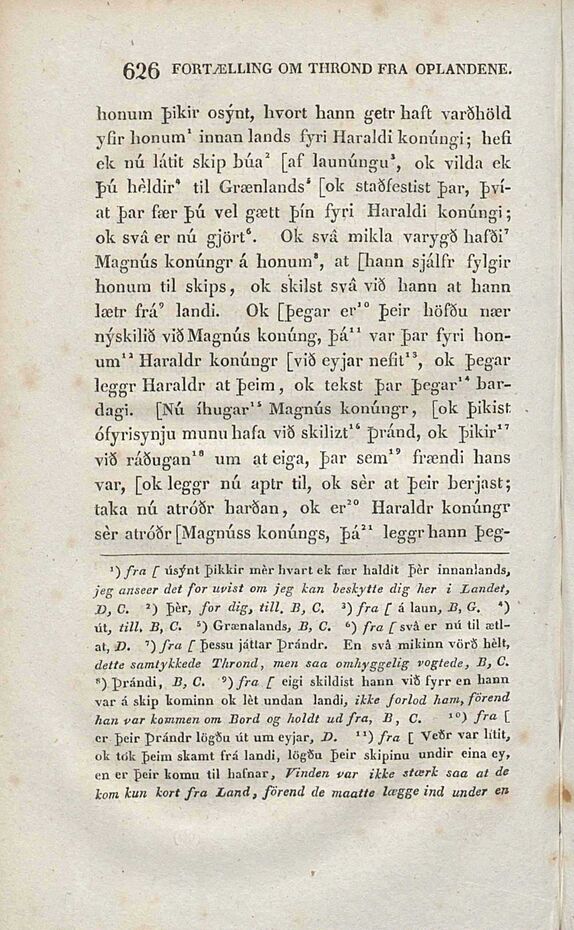 626 FORTÆLLING OM THROND FRA OPLANDENE.
honum þikir osýnt, hvort hann getr haft varðhöld
yfir honum¹ innan lands fyri Haraldi konúngi; hefi
ek nú látit skip búa² [af launúngu³, ok vilda ek
þú hèldir⁴ til Grænlands⁵ [ok staðfestist þar, því-
at þar fær þú vel gætt þín fyri Haraldi konúngi;
ok svâ er nú gjört⁶. Ok svâ mikla varygð hafði⁷
Magnús konúngr á honum⁸, at [hann sjálfr fylgir
honum til skips, ok skilst svâ við hann at hann
lætr frá⁹ landi. Ok [þegar er¹⁰ þeir höfðu nær
nýskilið við Magnús konúng, þá¹¹ var þar fyri hon-
um¹² Haraldr konúngr [við eyjar nefit¹³, ok þegar
leggr Haraldr at þeim, ok tekst þar þegar¹⁴ bar-
dagi. [Nú íhugar¹⁵ Magnús konúngr, [ok þikist
ófyrisynju munu hafa við skilizt¹⁶ þránd, ok þikir¹⁷
við ráðugan¹⁸ um at eiga, þar sem¹⁹ frændi hans
var, [ok leggr nú aptr til, ok sèr at þeir berjast;
taka nú atróðr harðan, ok er²⁰ Haraldr konúngr
sèr atróðr [Magnúss konúngs, þá²¹ leggr hann þeg-
¹) fra [ úsýnt þikkir mèr hvart ek fær haldit þèr innanlands,
jeg anseer det for uvist om jeg kan beskytte dig her i Landet,
D, C. ²) þèr, for dig, till. B, C. ³) fra [ á laun, B, G. ⁴)
út, till. B, C. ⁵) Grænalands, B, C. ⁶) fra [ svâ er nú til ætl-
at, D. ⁷) fra [ þessu játtar Þrándr. En svâ mikinn vörð hèlt,
dette samtykkede Thrond, men saa omhyggelig vogtede, B, C.
⁸) Þrándi, B, C. ⁹) fra [ eigi skildist hann við fyrr en hann
var á skip kominn ok lèt undan landi, ikke forlod ham, förend
han var kommen om Bord og holdt ud fra, B, C. ¹⁰) fra [
er þeir Þrándr lögðu út um eyjar, D. ¹¹) fra [ Veðr var lítit,
ok tók þeim skamt frá landi, lögðu þeir skipinu undir eina ey,
en er þeir komu til hafnar, Vinden var ikke stærk saa at de
kom kun kort fra Land, förend de maatte lægge ind under en